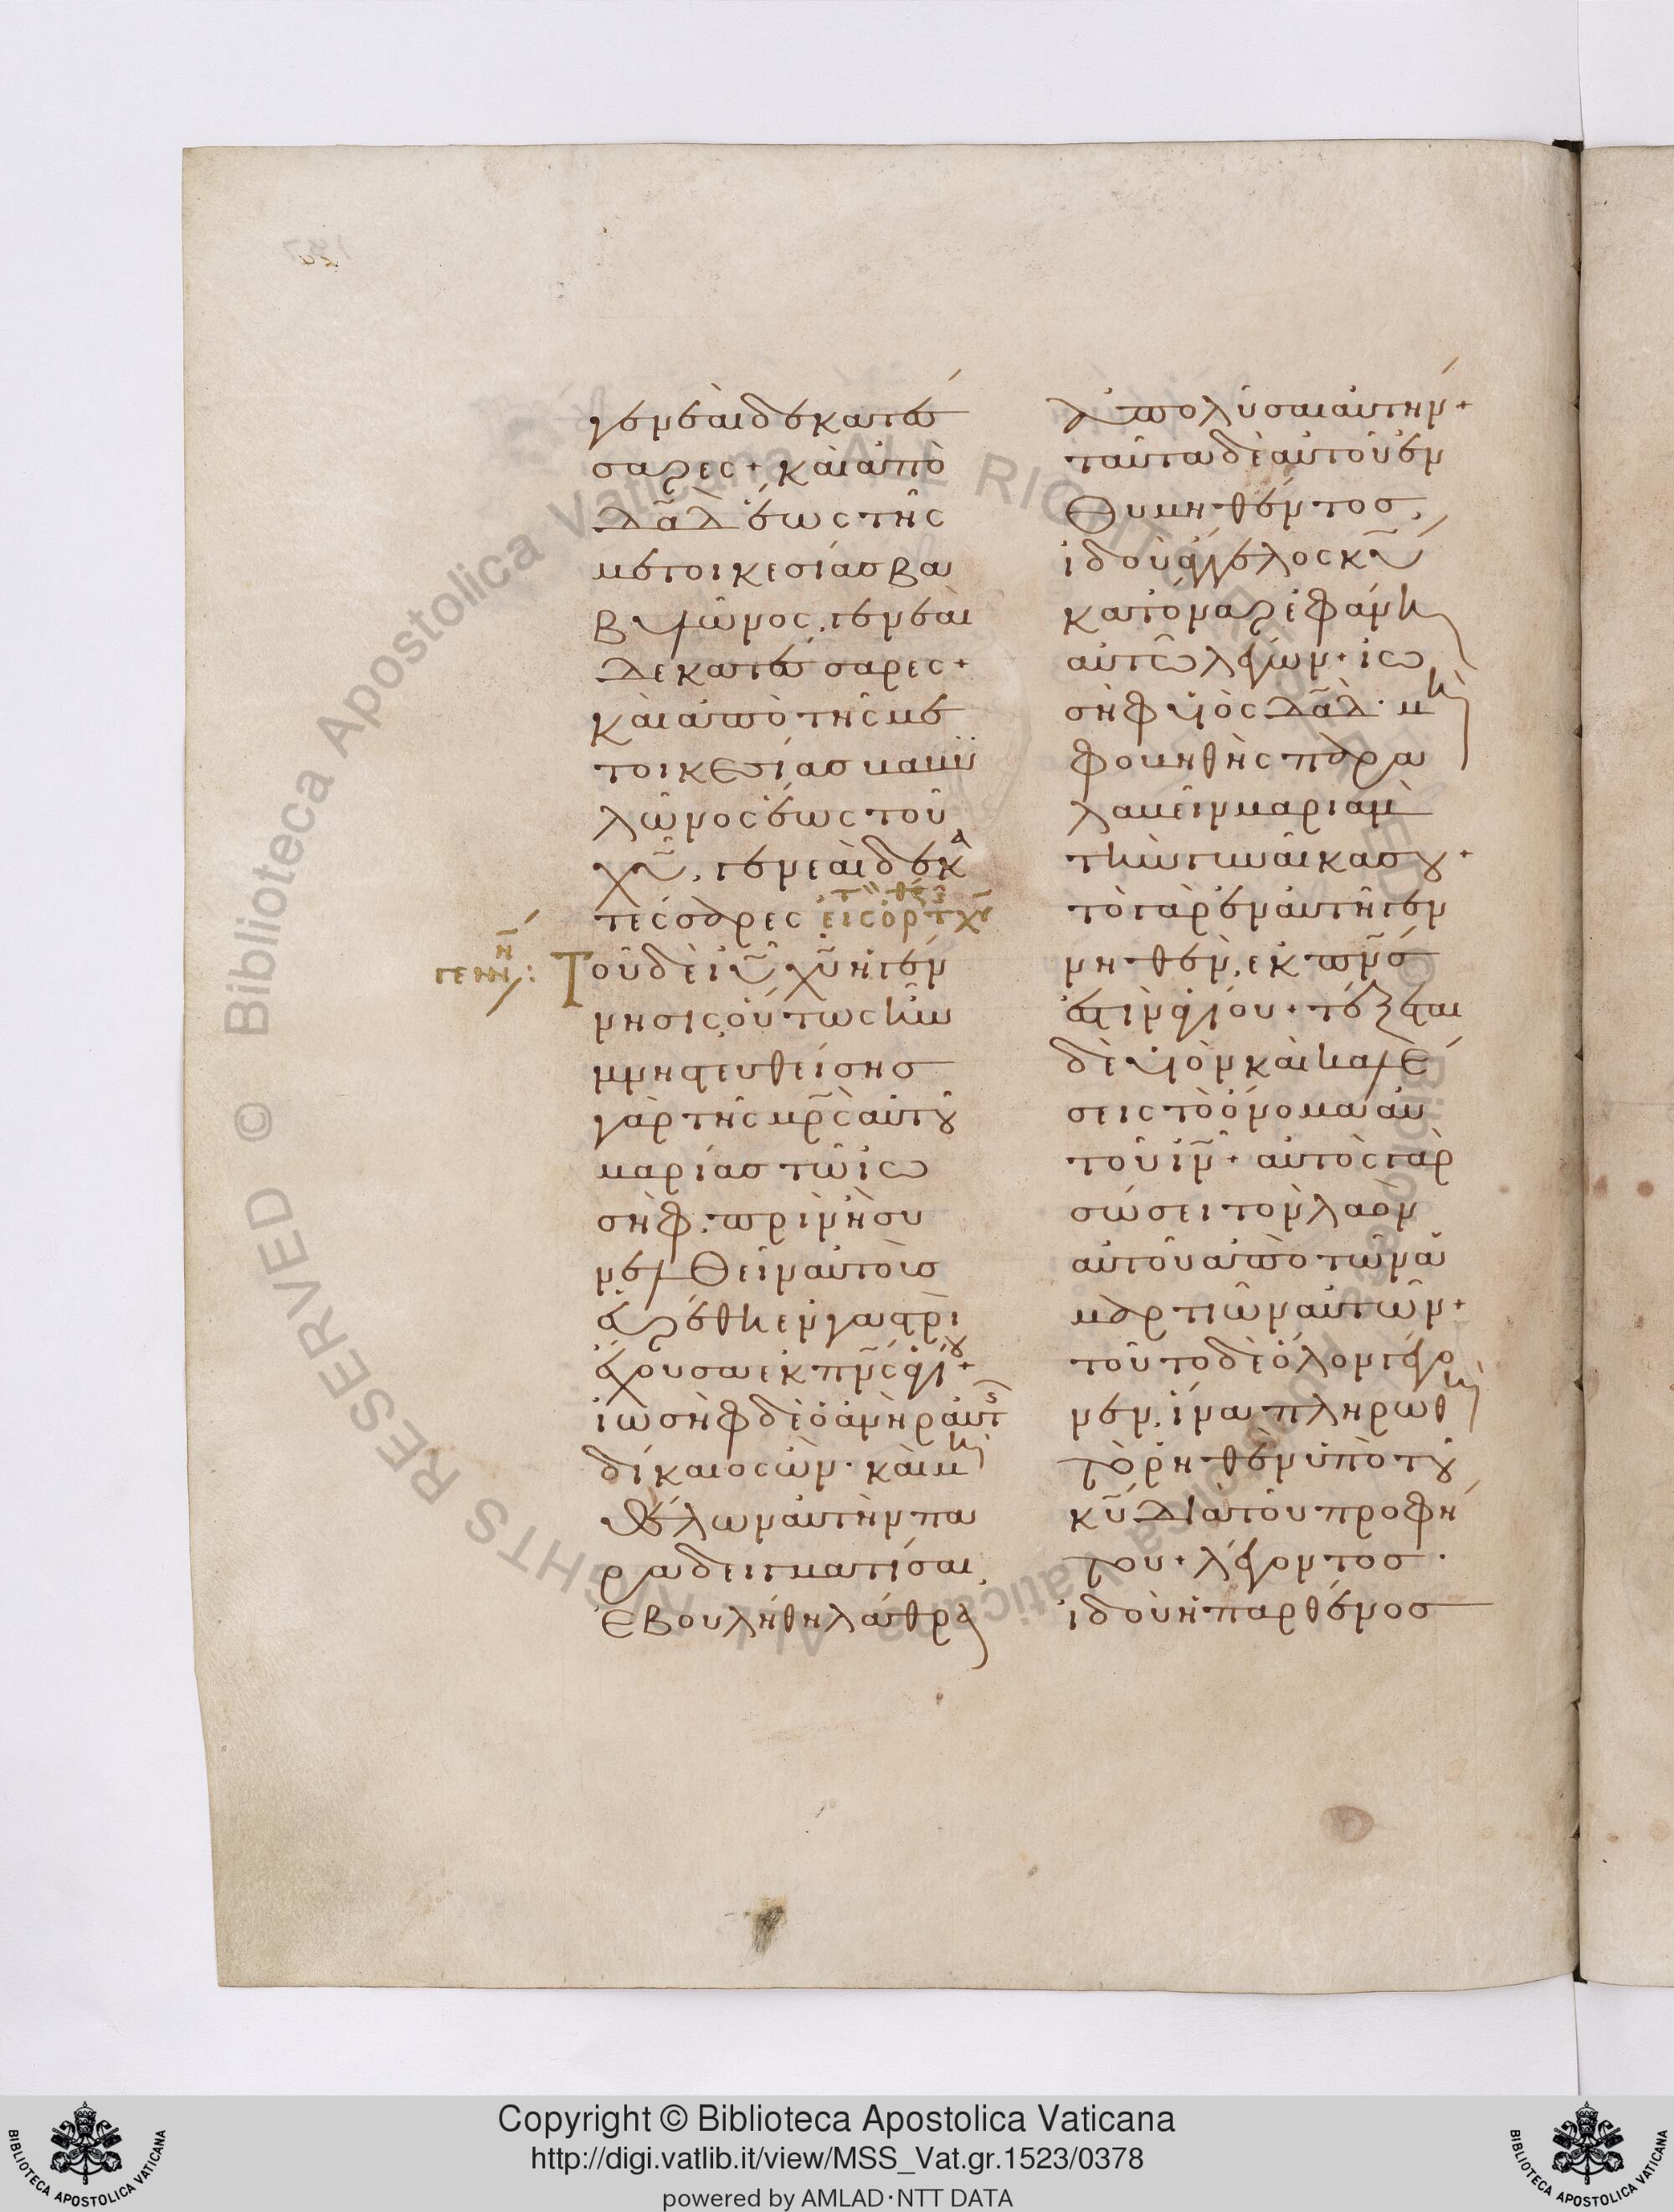 γενεαὶ δεκατέσ
σαρες + καὶ ἀπὸ
δᾱδ ἕως τῆς
μετοικεσίασ Βα
Βυλῶνος, γενεαὶ
δεκατέσσαρες +
καὶ ἀπὸ τῆς με
τοικεσίασ βαβυ
λῶνος ἕως τοῦ
χ̄υ, γενεαὶ δεκα
τέσσαρες
εἰς ὀρ τ χ̄υ
γενν :
Τοῦ δὲ ῑυ χ̄υ ἡ γέν
νησις οὕτως ἦν
μνηστευθείσησ
γὰρ τῆς μ̄ρ̄ς αὐτοῦ
μαρίασ τῶ ἰω
σὴφ, πρὶν ἢ συ
νελθεῖν αὐτοὺσ
εὑρέθη ἐν γαστρὶ
ἔχουσα ἐκ π̄ν̄ς ἁγίου +
ἰωσὴφ δὲ ὁ ἀνὴρ αὐτῆς
δίκαιος ὢν · καὶ μὴ
θέλων αὐτὴν πα
ραδειγματίσαι
ἐβουλήθη λάθρα
ἀπολῦσαι αὐτήν +
ταῦτα δὲ αὐτοῦ ἐν
θυμηθέντοσ,
ἰδοὺ ἄγγελος κ̄υ
κατ ὄναρ ἐφάνη
αὐτῶ λέγων + ἰω
σὴφ υἱὸς δᾱδ · μὴ
φοβηθῆς παρα
λαβεῖν μαριὰμ
τὴν γυναῖκα σου +
τὸ γὰρ ἐν αὐτῆ γεν
νηθέν, ἐκ π̄ν̄ς
ἐστιν ἁγίου + τέξεται
δὲ υἱὸν καὶ καλέ
σεις τὸ ὄνομα αὐ
τοῦ ῑν + αὐτὸς γὰρ
σώσει τὸν λαὸν
αὐτοῦ ἀπὸ τῶν ἁ
μαρτιῶν αὐτῶν +
τοῦτο δὲ ὅλον γέγο
νεν, ἵνα πληρωθῆ
τὸ ῥηθὲν ὑπὸ τοῦ
κ̄υ διὰ τοῦ προφή
του + λέγοντοσ ·
ἰδοὺ ἡ παρθένοσ
Copyright © Biblioteca Apostolica Vaticana
http://digi.vatlib.it/view/MSS_Vat.gr.1523/0378
powered by AMLAD·NTT DATA
BIBLIOTECA APOSTOLICA VATICANA
BIBLIOTECA APOSTOLICA VATICANA